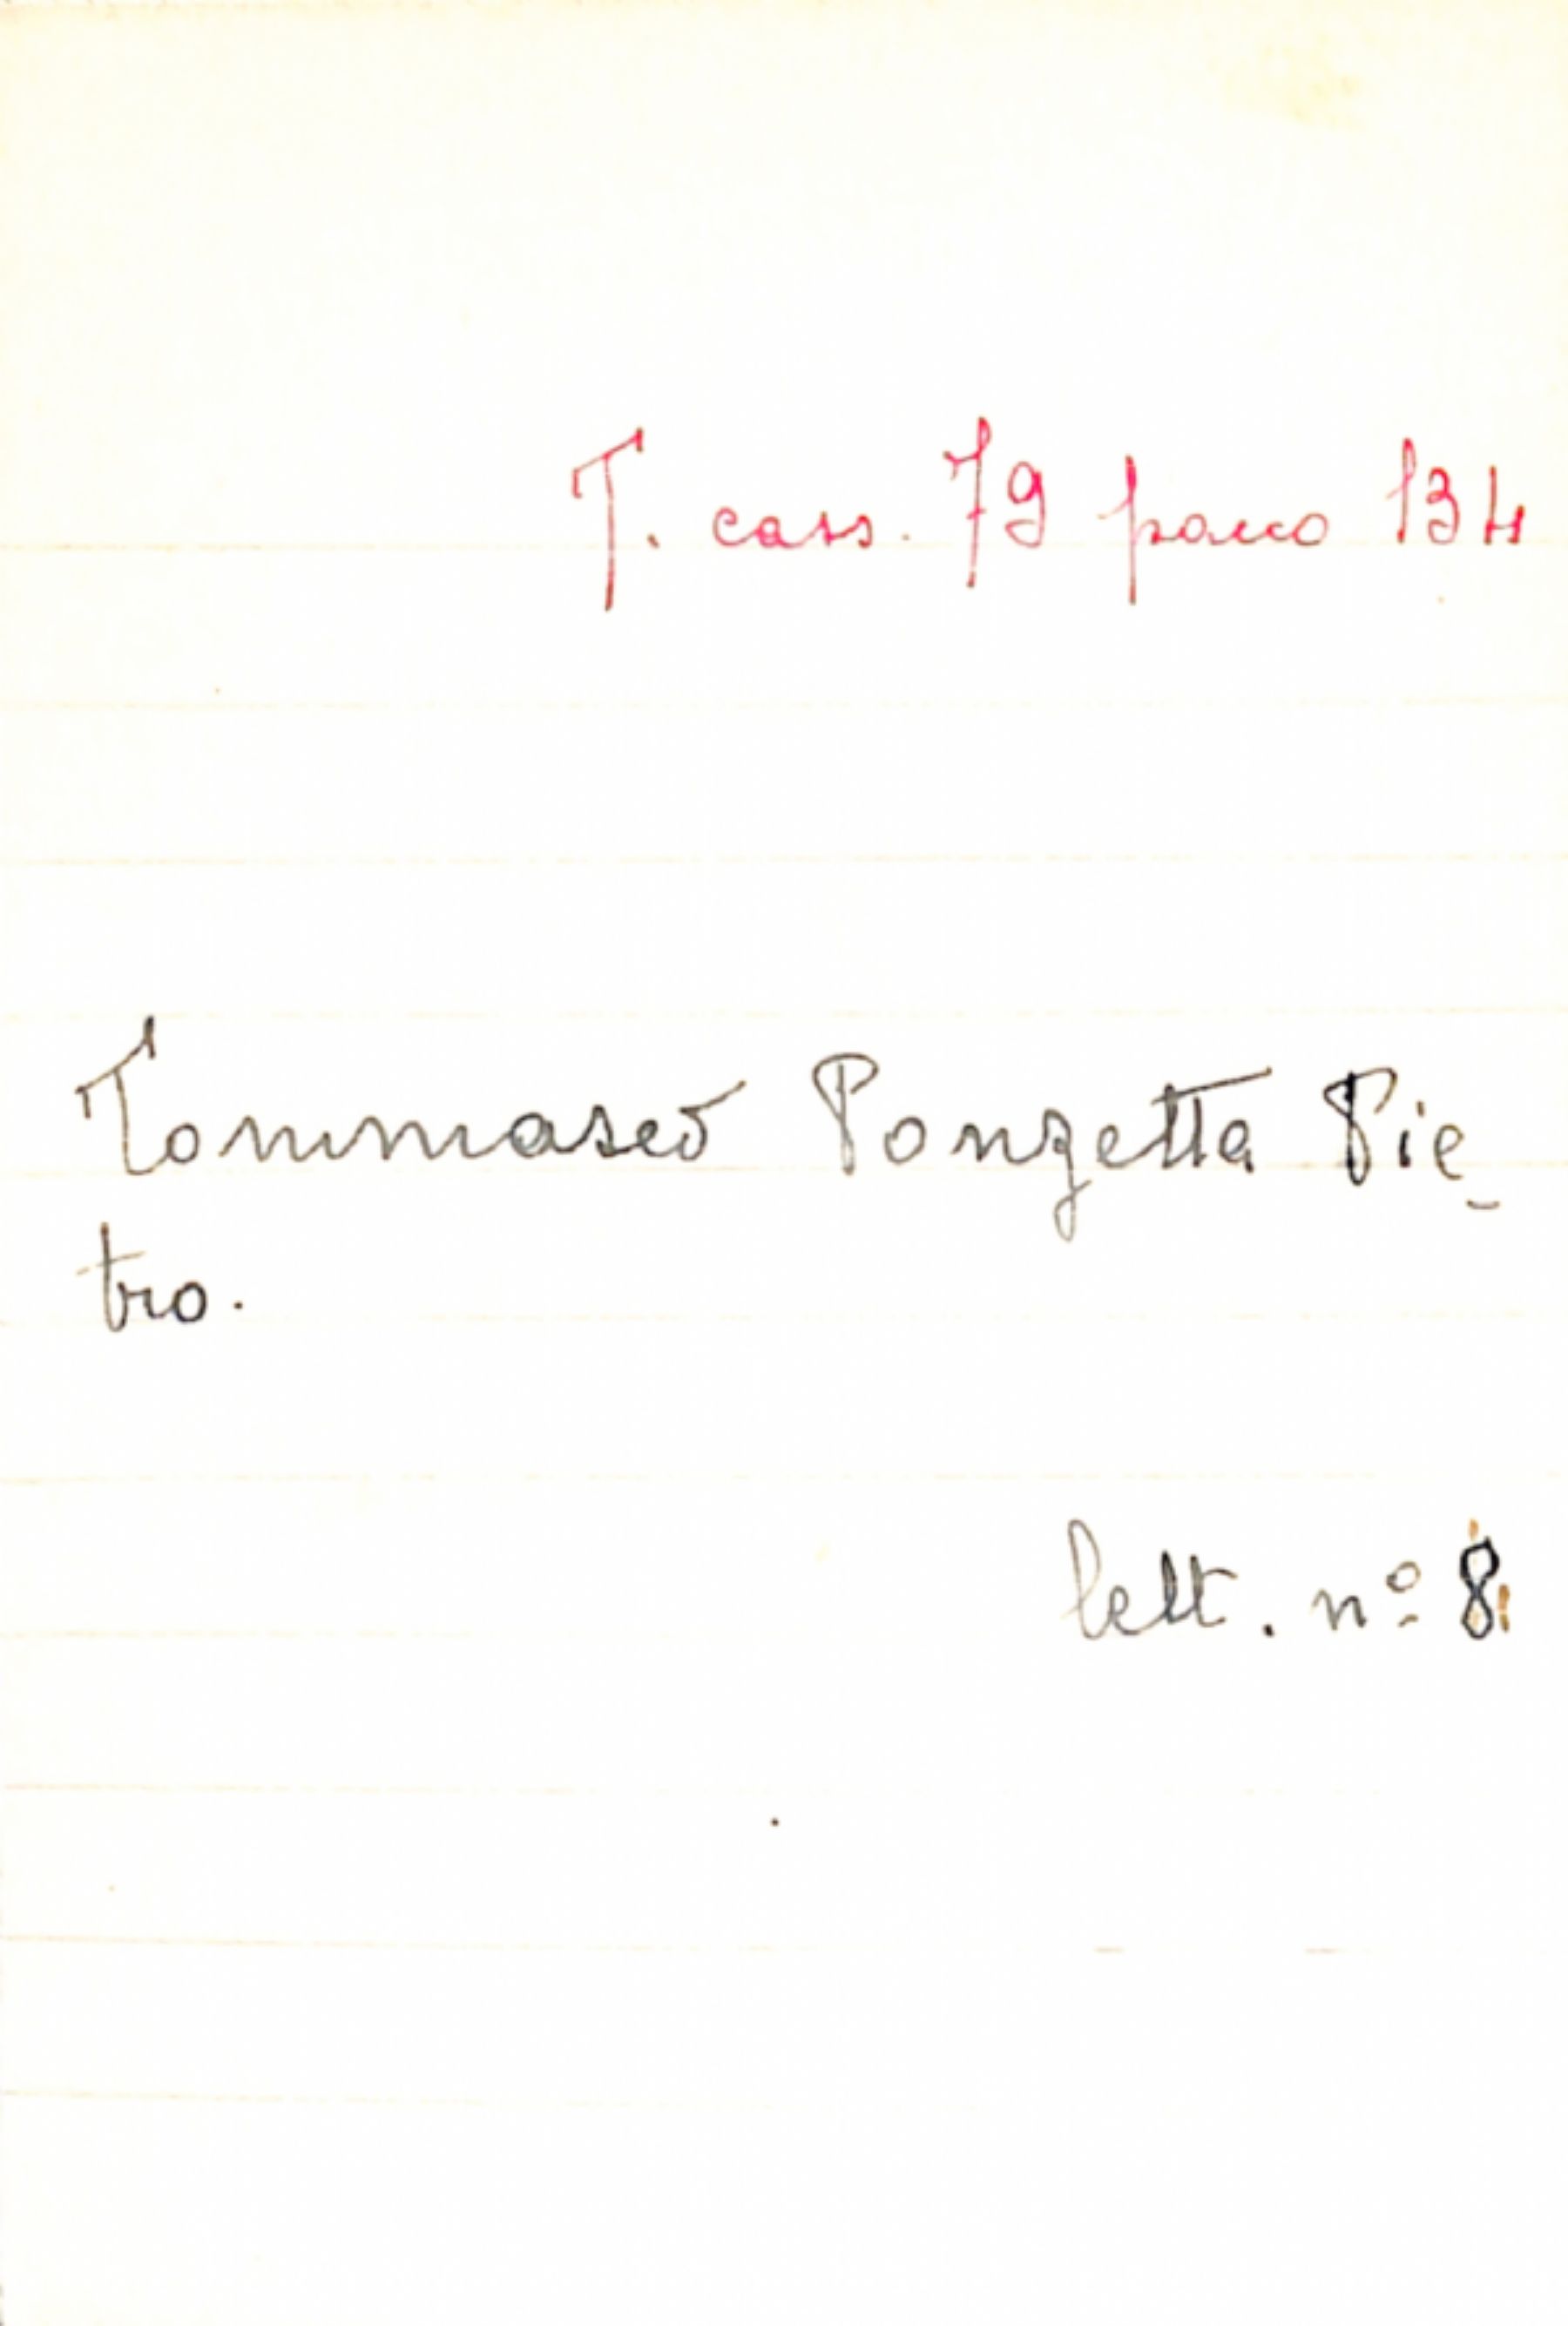 T. cass. 79 pacco 134
Tommaseo Ponzetta Pie-
tro.
lett. nº 8